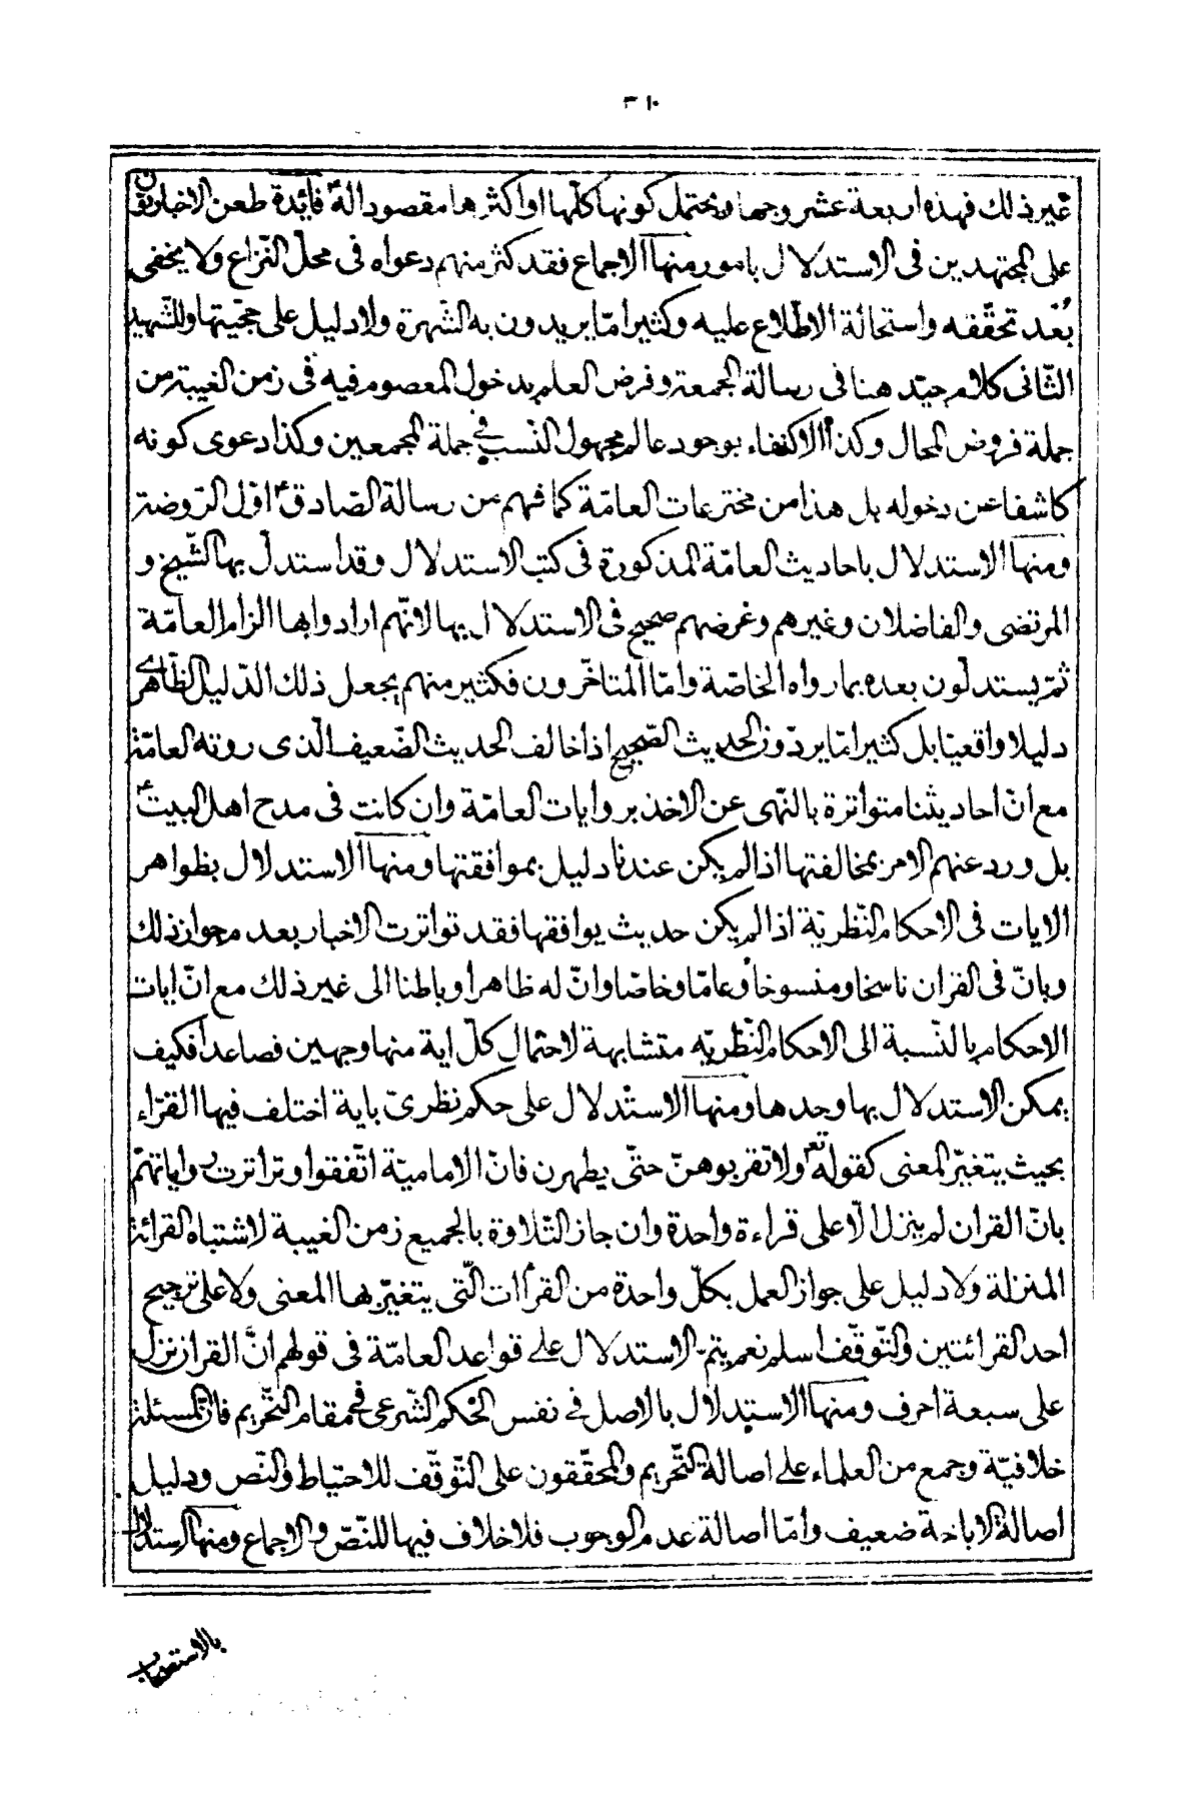 ٣١٠
غير ذلك فهذه اربعة عشر وجها ويحتمل كونها كلّها او اكثرها مقصودا له ع فائدة طعن الاخباريّون
على المجتهدين فى الاستدلال بامور منها الاجماع فقد كثر منهم دعواه فى محلّ النّزاع ولا يخفى
بُعْد تحقّقه واستحالة الاطّلاع عليه وكثيرا مّا يريدون به الشّهرة ولا دليل على حجّيتها وللشّهيد
الثّانى كلام جيّد هنا فى رسالة الجمعة وفرض العلم بدخول المعصوم فيه فى زمن الغيبة من
جملة فروض المحال وكذا الاكتفاء بوجود عالم مجهول النّسب فى جملة المجمعين وكذا دعوى كونه
كاشفا عن دخوله بل هذا من مخترعات العامّة كما فهم من رسالة الصّادق ع اوّل الرّوضة
ومنها الاستدلال باحاديث العامّة المذكورة فى كتب الاستدلال وقد استدلّ بها الشّيخ و
المرتضى والفاضلان وغيرهم وغرضهم صحيح فى الاستدلال بها لانّهم ارادوا بها الزام العامّة
ثمّ يستدلّون بعده بما رواه الخاصّة وامّا المتاخّرون فكثير منهم يجعل ذلك الدّليل الظّاهرى
دليلا واقعيّا بل كثيرا مّا يردّون الحديث الصّحيح اذا خالف الحديث الضّعيف الّذى روته العامّة
مع انّ احاديثنا متواترة بالنّهى عن الاخذ بروايات العامّة وان كانت فى مدح اهل البيت ع
بل ورد عنهم الامر بمخالفتها اذا لم يكن عندنا دليل بموافقتها ومنها الاستدلال بظواهر
الايات فى الاحكام النّظريّة اذا لم يكن حديث يوافقها فقد تواترت الاخبار بعدم جواز ذلك
وبانّ فى القران ناسخا ومنسوخا وعامّا وخاصّا وانّ له ظاهرا وباطنا الى غير ذلك مع انّ ايات
الاحكام بالنّسبة الى الاحكام النّظريّه متشابهة لاحتمال كلّ اية منها وجهين فصاعدا فكيف
يمكن الاستدلال بها وحدها ومنها الاستدلال على حكم نظرىّ باية اختلف فيها القرّاء
بحيث يتغيّر المعنى كقوله تع ولا تقربوهنّ حتّى يطهرن فانّ الاماميّة اتّفقوا وتواترت رواياتهم
بانّ القران لم ينزل الّا على قراءة واحدة وان جاز التّلاوة بالجميع زمن الغيبة لاشتباه القرائة
المنزلة ولا دليل على جواز العمل بكلّ واحدة من القراات الّتى يتغيّر بها المعنى ولا على ترجيح
احد القرائتين والتّوقّف اسلم نعم يتمّ الاستدلال على قواعد العامّة فى قولهم انّ القران نزل
على سبعة احرف ومنها الاستدلال بالاصل فى نفس الحكم الشّرعى فى مقام التّحريم فانّ المسئلة
خلافيّة وجمع من العلماء على اصالة التّحريم والمحقّقون على التّوقّف للاحتياط والنّص ودليل
اصالة الاباحة ضعيف وامّا اصالة عدم الوجوب فلا خلاف فيها للنّصّ والاجماع ومنها الاستدلال
بالاستصحاب